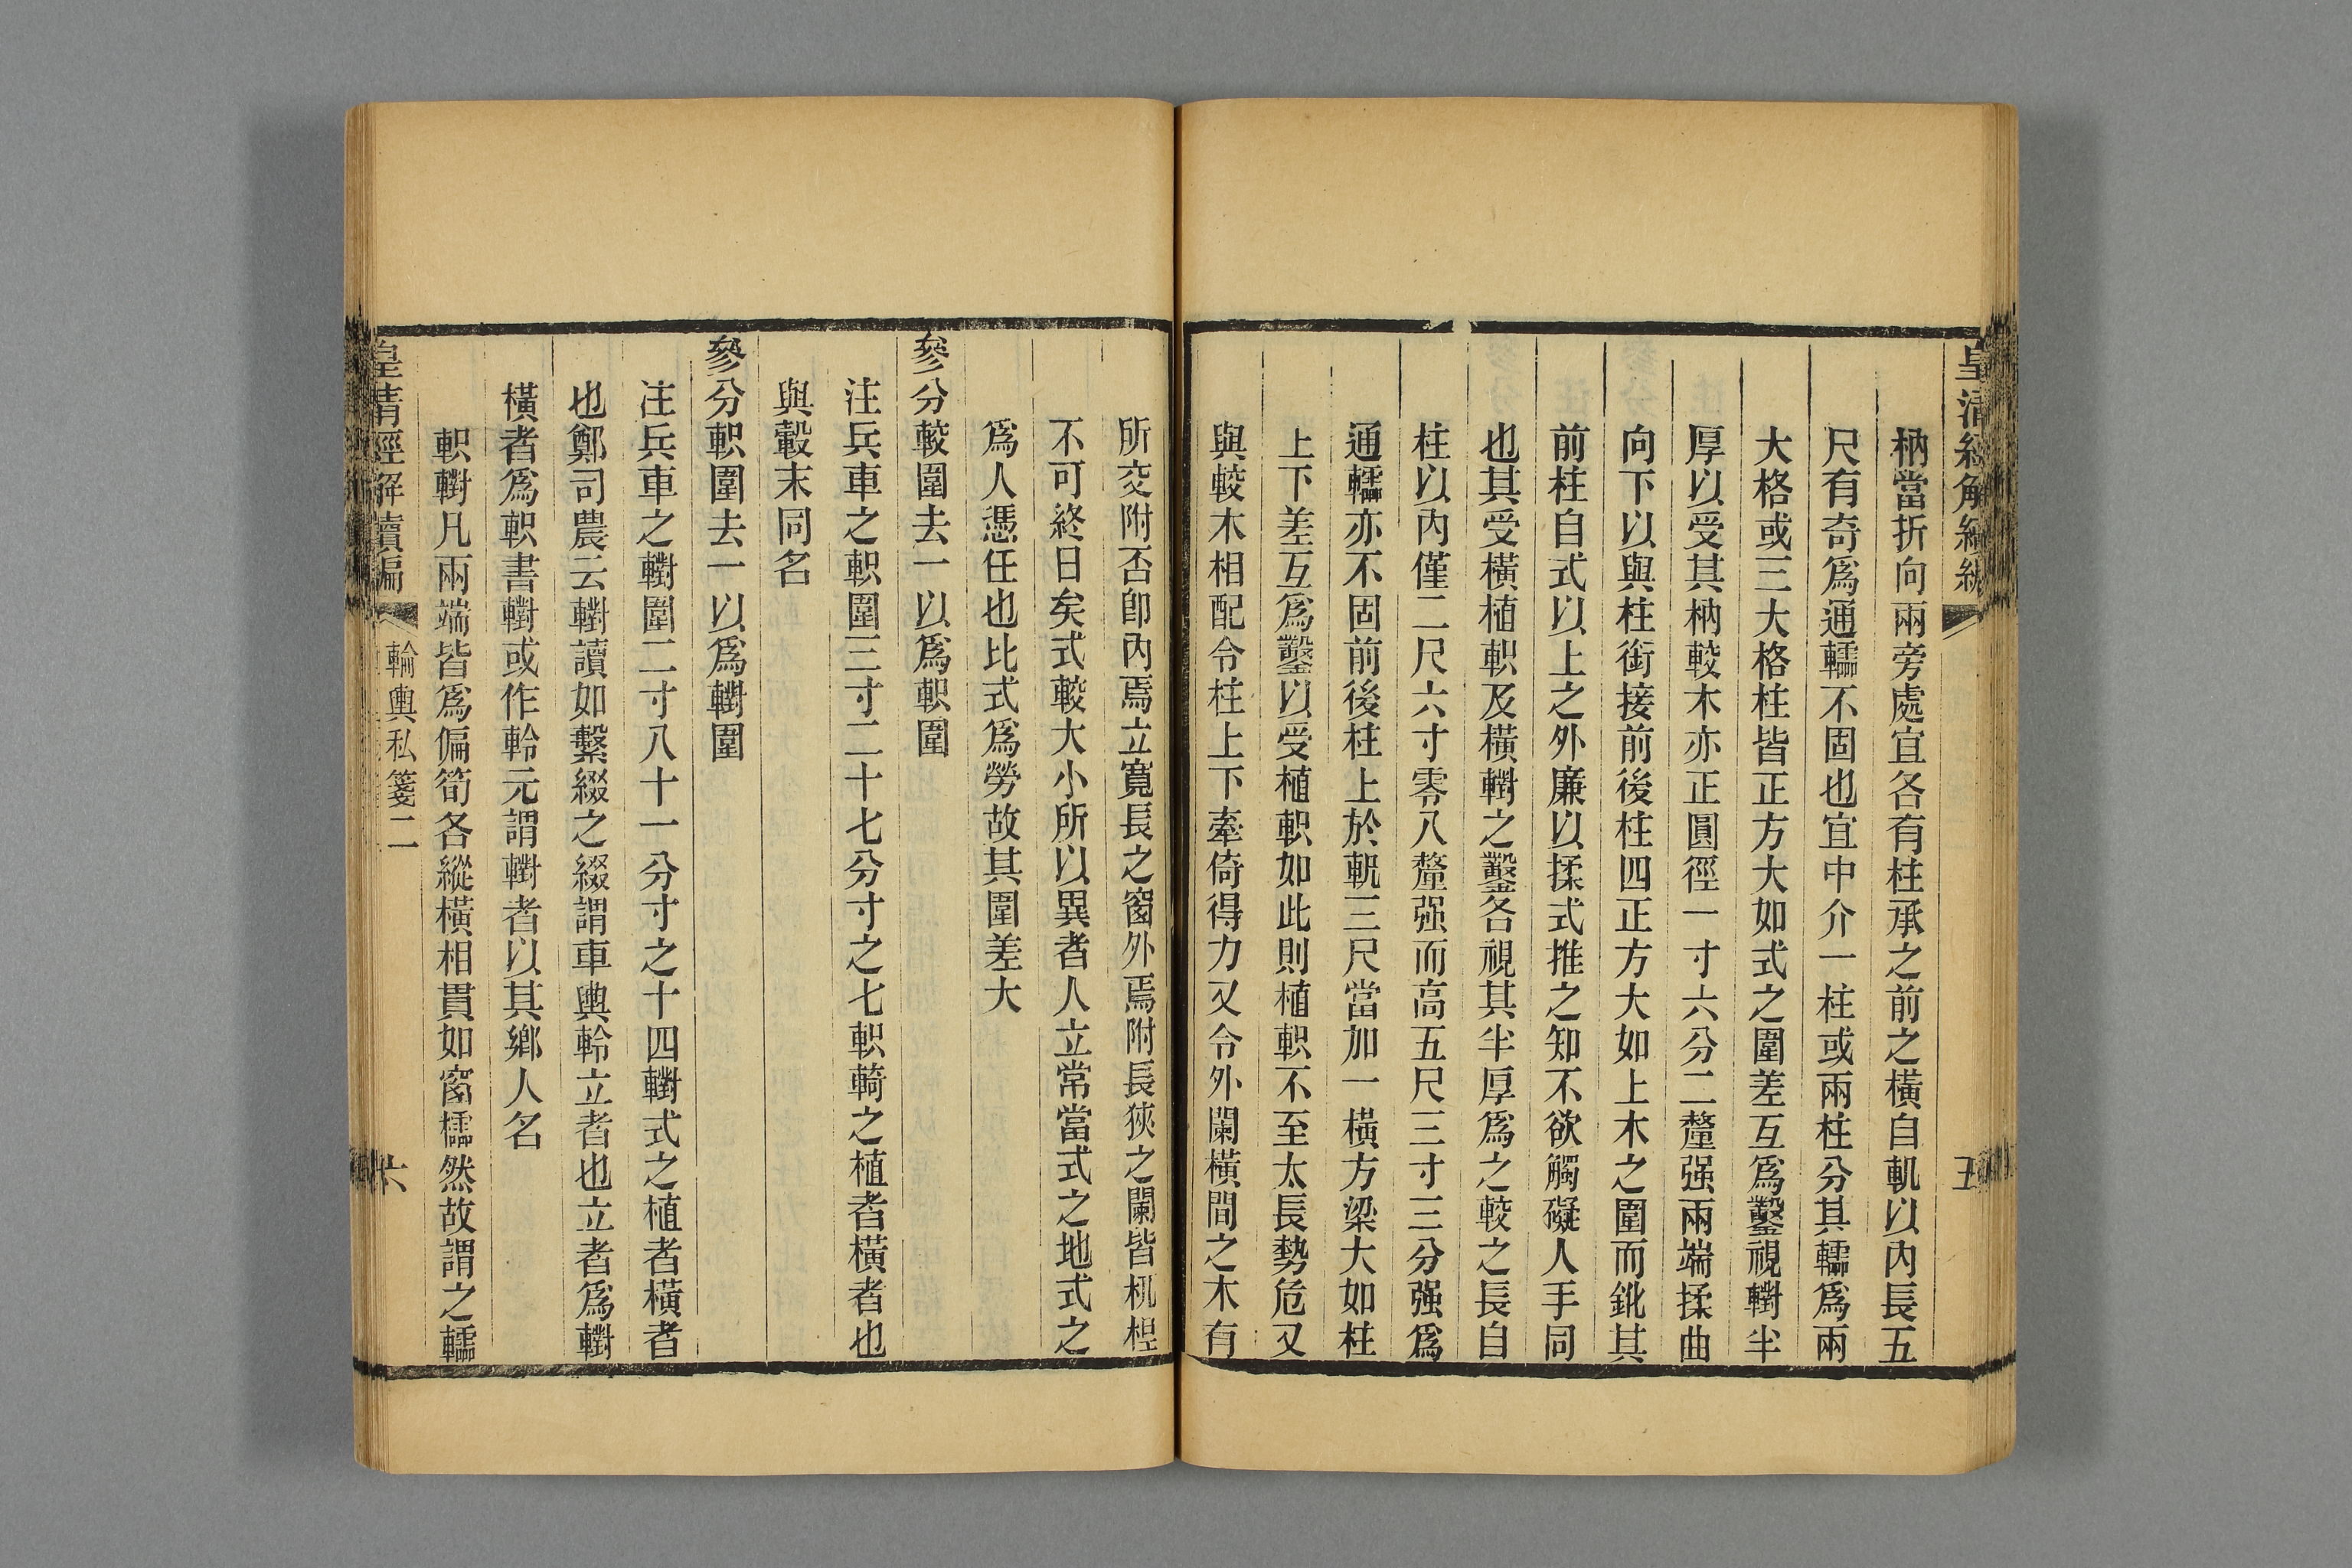 皇清經解續編
五
枘當折向兩旁處宜各有柱承之前之橫自軓以內長五
尺有奇爲通轜不固也宜中介一柱或兩柱分其轜爲兩
大格或三大格柱皆正方大如式之圍差互爲鑿視轛半
厚以受其枘較木亦正圓徑一寸六分二釐强兩端揉曲
向下以與柱銜接前後柱四正方大如上木之圍而鈋其
前柱自式以上之外廉以揉式推之知不欲觸礙人手同
也其受橫植軹及橫轛之鑿各視其半厚爲之較之長自
柱以內僅二尺六寸零八釐强而高五尺三寸三分强爲
通轜亦不固前後柱上於軓三尺當加一橫方梁大如柱
上下差互爲鑿以受植軹如此則植軹不至太長勢危又
與較木相配令柱上下牽倚得力又令外闌橫間之木有
所交附否卽內焉立寬長之窗外焉附長狹之闌皆杌桯
不可終日矣式較大小所以異者人立常當式之地式之
爲人憑任也比式爲勞故其圍差大
參分較圍去一以爲軹圍
注兵車之軹圍三寸二十七分寸之七軹輢之植者橫者也
與轂末同名
參分軹圍去一以爲轛圍
注兵車之轛圍二寸八十一分寸之十四轛式之植者橫者
也鄭司農云轛讀如繫綴之綴謂車輿軨立者也立者爲轛
橫者爲軹書轛或作軨元謂轛者以其鄉人名
軹轛凡兩端皆爲偏筍各縱橫相貫如窗櫺然故謂之轜
皇清經解續編
輪輿私箋二
六